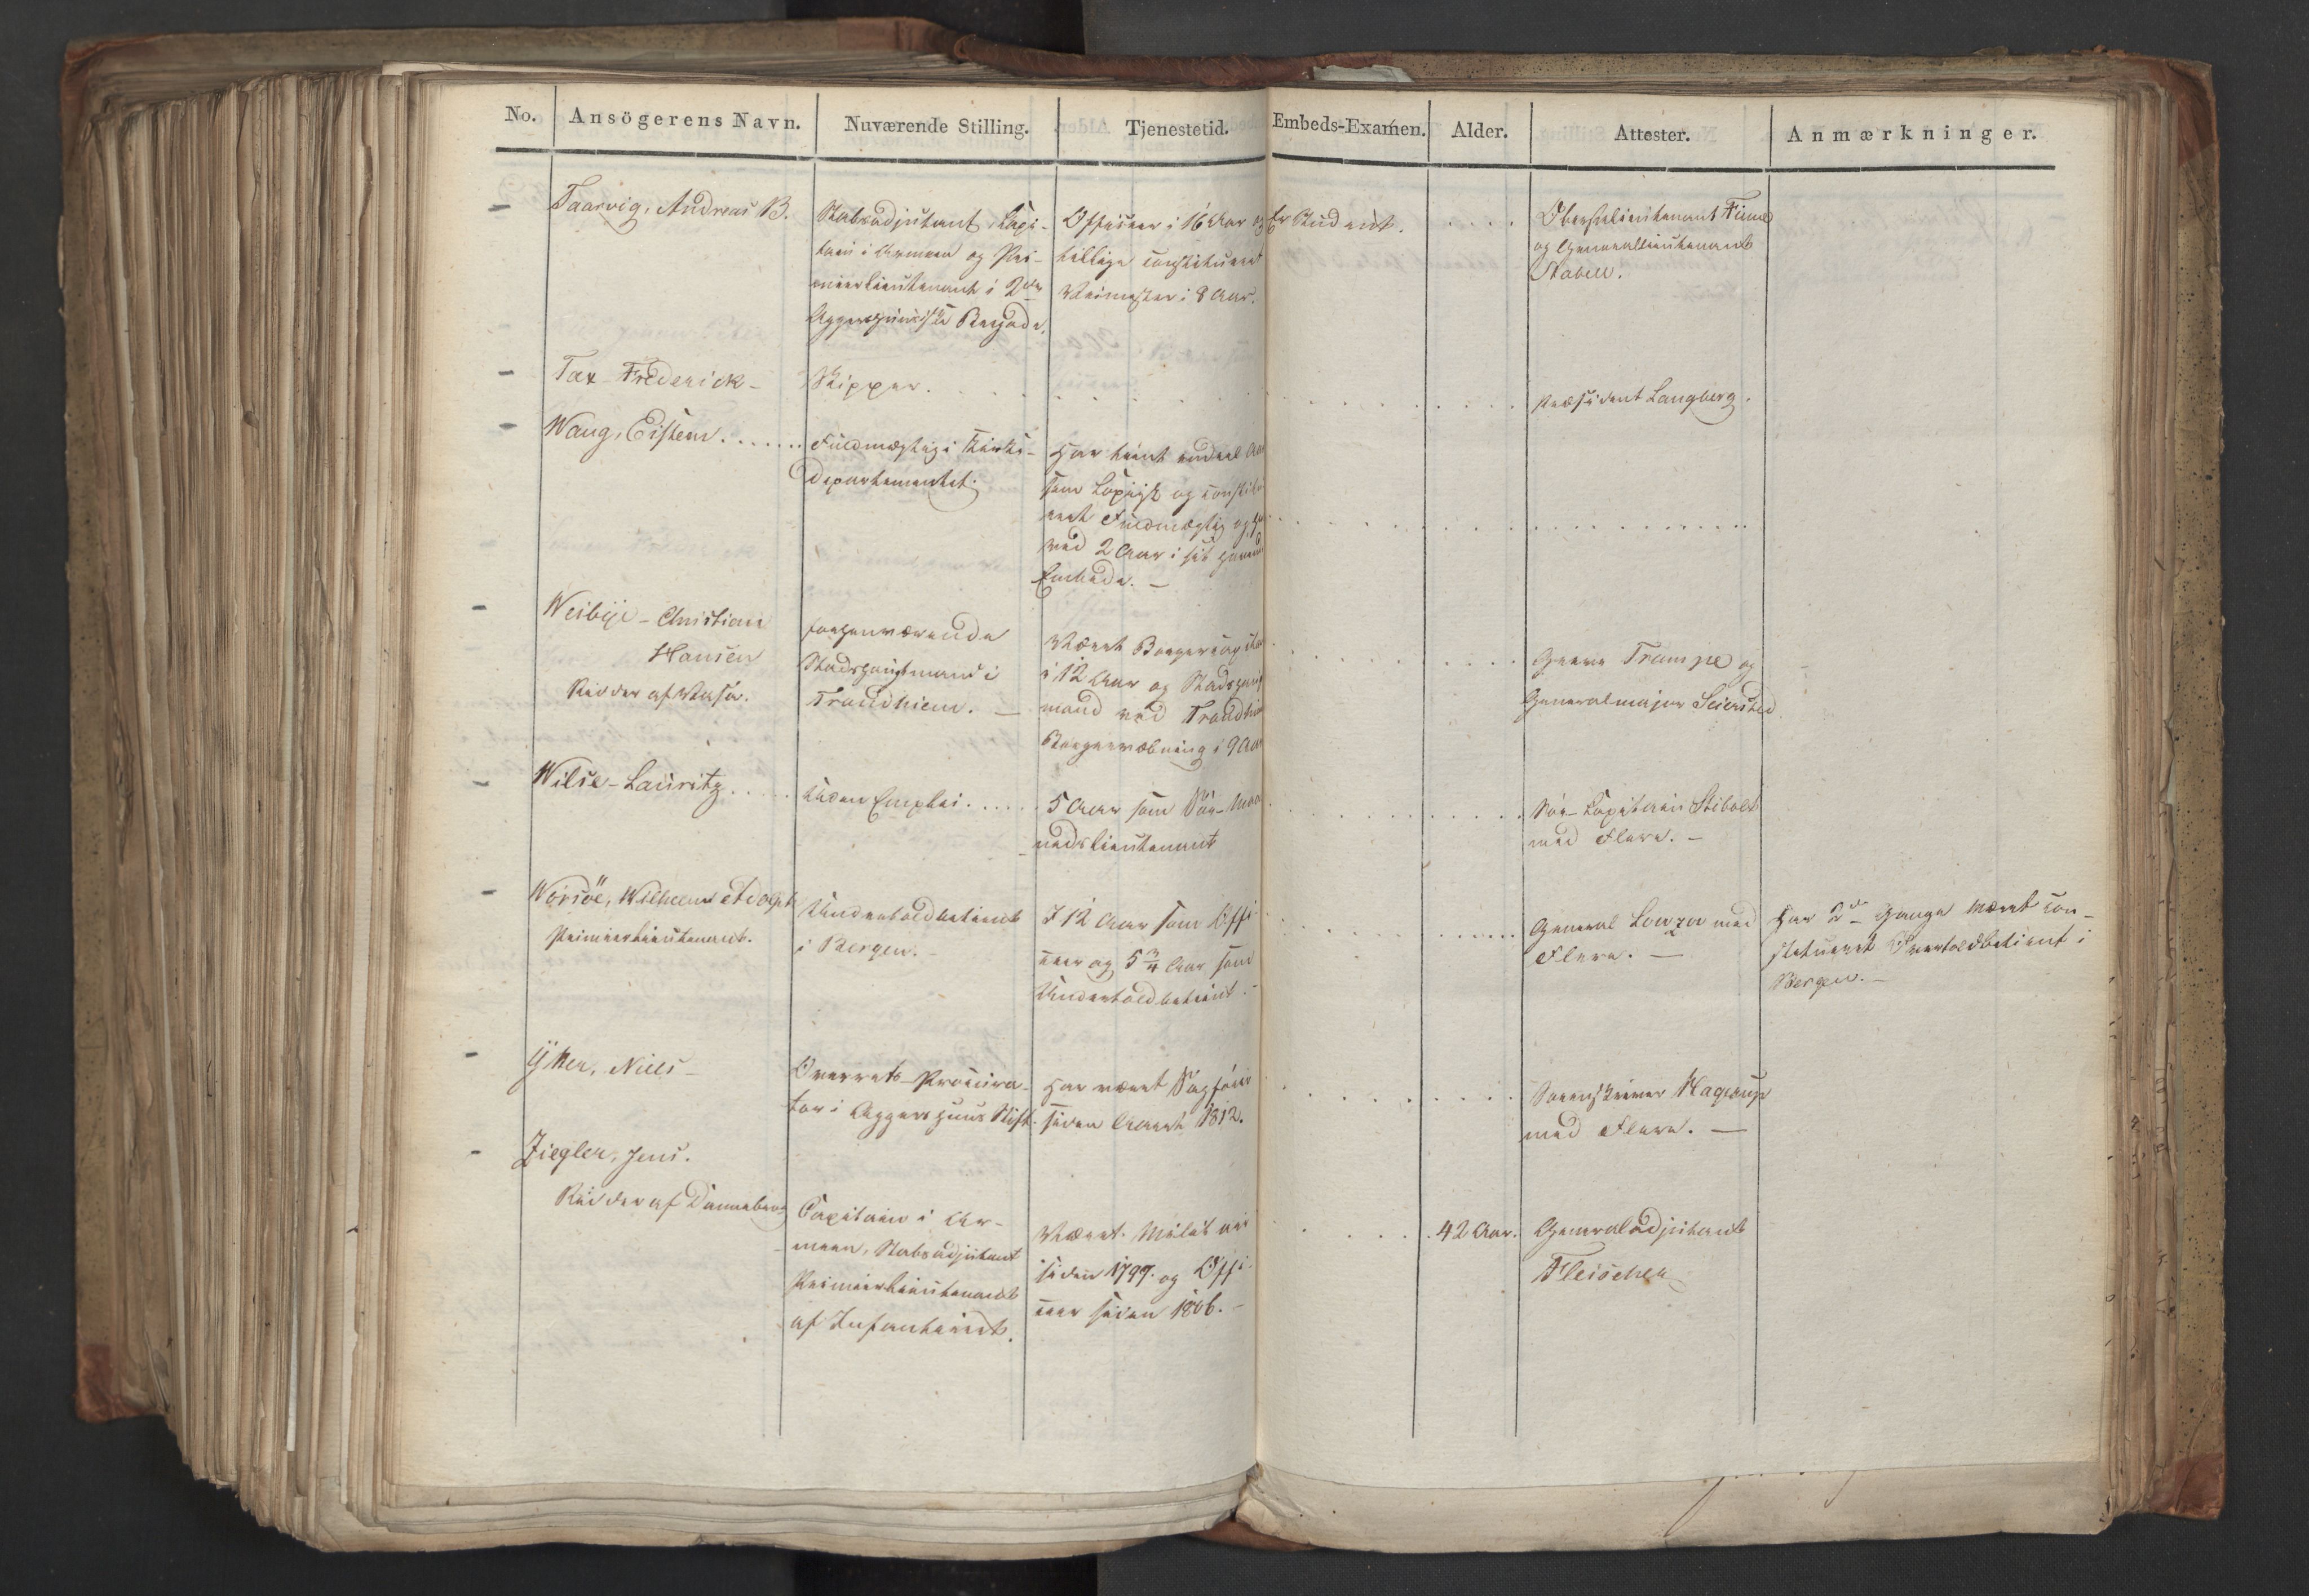 No. Ansögerens Navn. Nuværende Stilling. Tjenestetid. Embeds-Examen. Alder. Attester. Anmærkninger.
Taarvig, Andreas B.
Stabsadjutant, Capi-
tain i Armeen og Pre-
mierlieutenant i 2den
Aggershuusiske Brigade.
Officeer i 16 Aar og
tillige constitueret
Veimester i 8 Aar.
Er Student.
Oberstlieutenant
og Generallieutenant
Stabell.
Tax Frederick
Skipper.
Præsident Langberg.
Wang, Eistein
Fuldmægtig i Kirke-
departementet.
Har tient endeel Aar
som Copiist og constitu-
eret Fuldmægtig og
ved 2 Aar i sit
Embede.
Weibye - Christian
Hansen
Ridder af Wasa.
forhenværende
Stadshauptmand i
Trondhiem.
Været Borgercapitain
i 12 Aar og Stadshaupt
mand ved Trondhiems
Borgervæbning i 9 Aar
Greve Trampe og
Generalmajor Seiersted
Wilse - Lauritz
Uden Emploi
5 Aar som Söe-Maa
nedslieutenant
Söe-Capitain Stibolt
med Flere.
Worsöe, Wilhelm Adolph
Premierlieutenant.
Undertoldbetient
i Bergen.
I 12 Aar som Offi
ceer og 5 3/4 Aar som
Undertoldbetient.
General Lowzow med
Flere.
Har 2de Gange været con-
stitueret Overtoldbetient i
Bergen.
Niels
Overrets-Procura-
tor i Aggershuus Stift.
Har været Sagförer
siden Aaret 1812.
Sorenskriver Hagerup
med Flere.
Ziegler, Jens.
Ridder af Dannebrog
Capitain i Ar-
meen, Stabsadjutant
Premierlieutenant
af Infanteriet.
Været Militair
siden 1797. og Offi-
ceer siden 1806.
42 Aar.
Generaladjutant
Fleischer